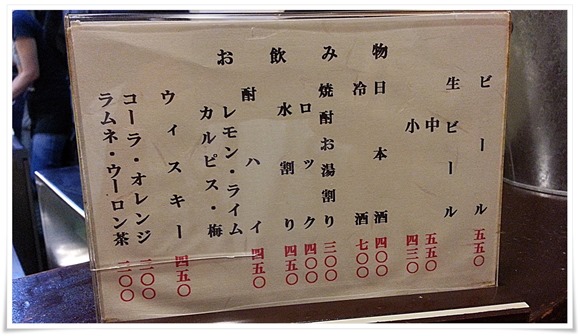 お飲み物
ビール 五五〇
生ビール
中 五五〇
小 四三〇
日本酒 四〇〇
冷酒 七〇〇
焼酎お湯割り 三〇〇
ロック 四〇〇
水割り 四五〇
酎ハイ 四五〇
レモン・ライム
カルピス・梅
ウィスキー 四五〇
コーラ・オレンジ 二〇〇
ラムネ・ウーロン茶 二〇〇